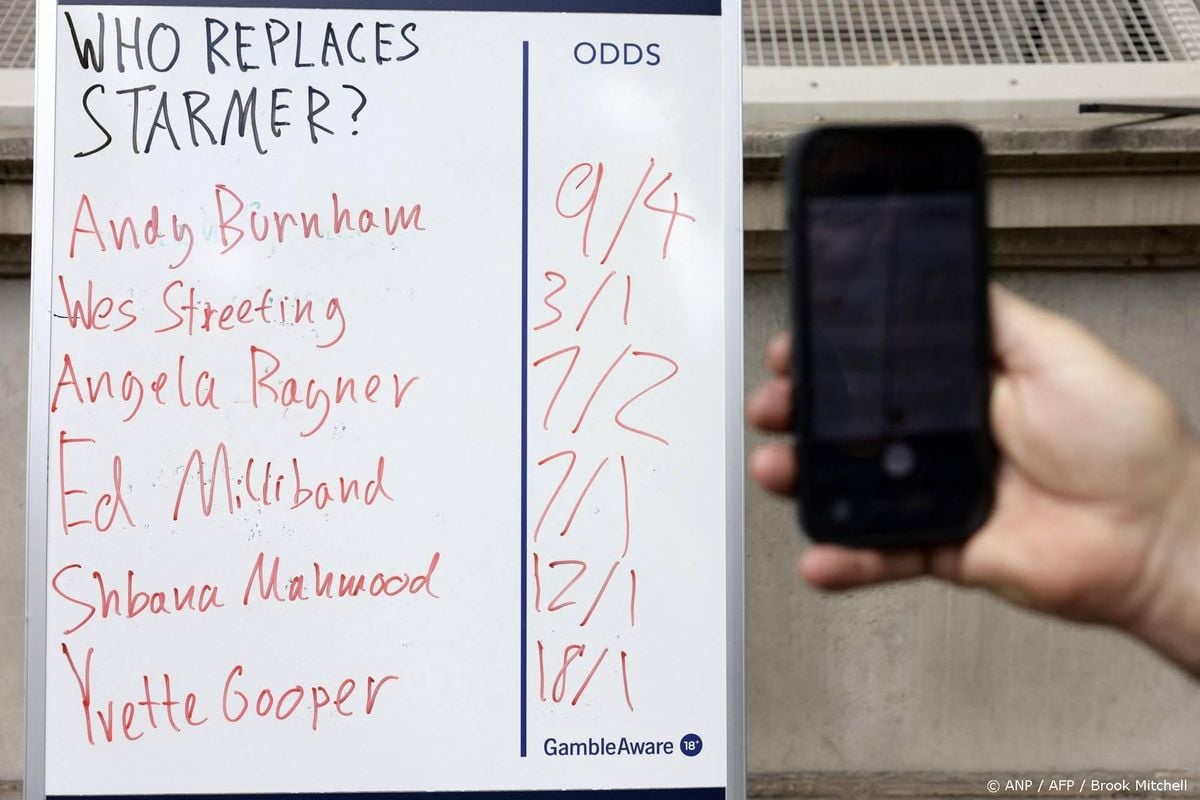 WHO REPLACES
STARMER?
ODDS
Andy Burnham 9/4
Wes Streeting 3/1
Angela Rayner 7/2
Ed Milliband 7/1
Shbana Mahmood 12/1
Yvette Cooper 18/1
GambleAware 18+
© ANP / AFP / Brook Mitchell